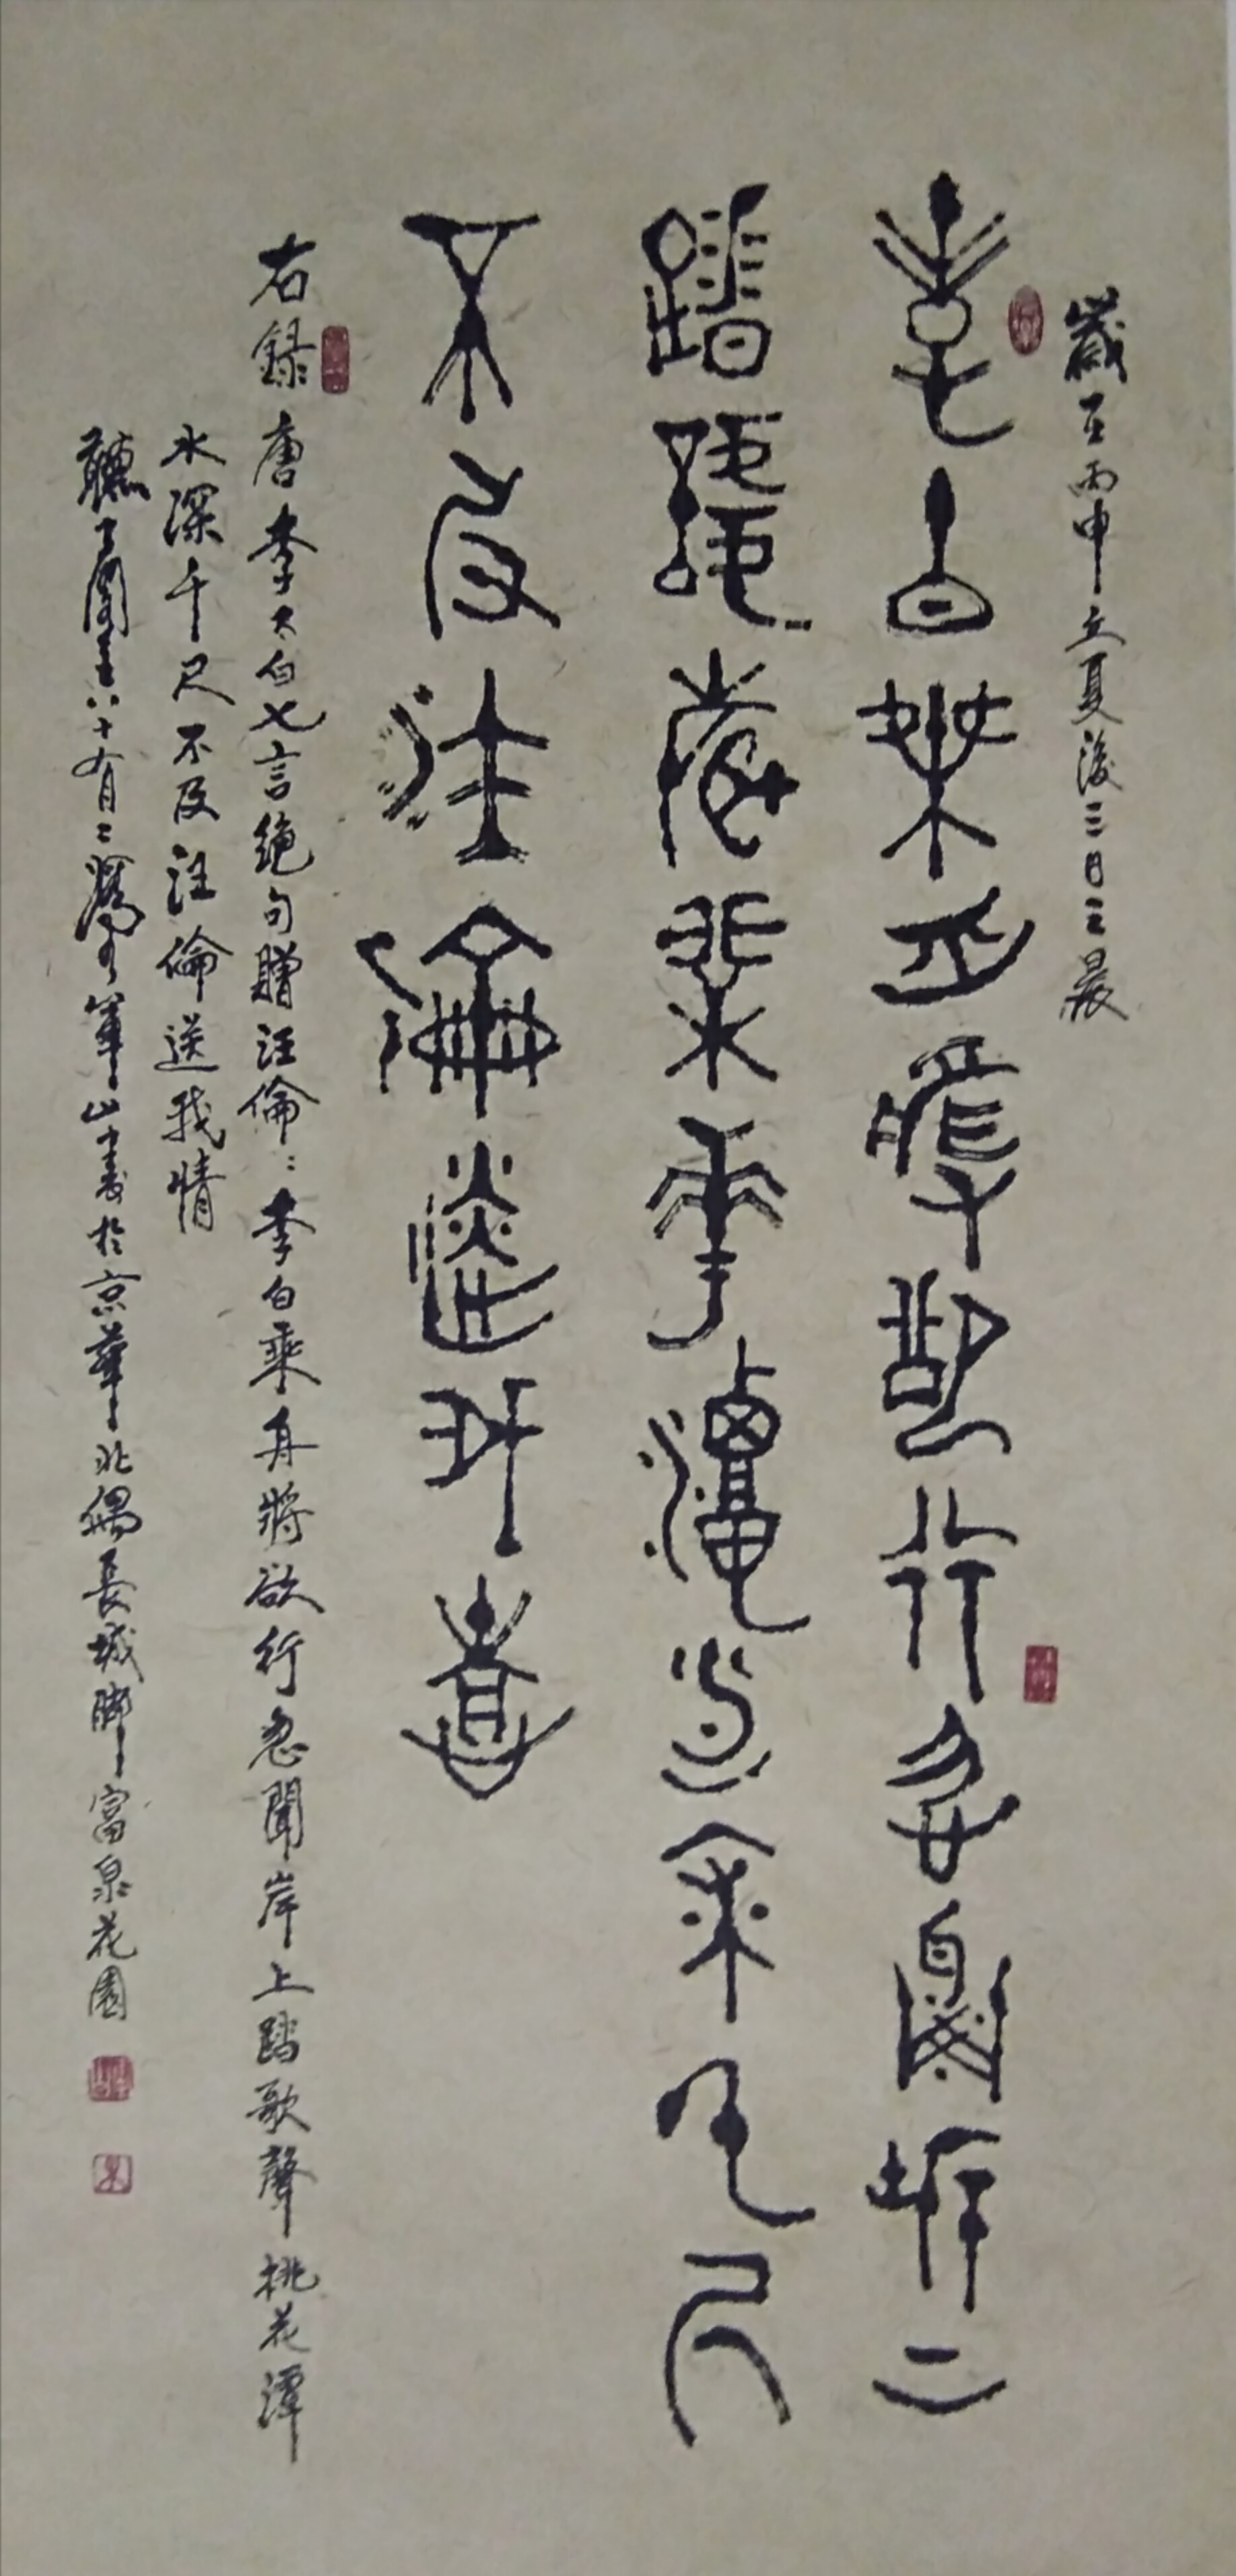 歲在丙申立夏後三日之晨
李白乘舟將欲行忽聞岸上
踏歌聲桃花潭水深千尺
不及汪倫送我情
右錄唐李太白七言絕句贈汪倫：李白乘舟將欲行忽聞岸上踏歌聲桃花潭
水深千尺不及汪倫送我情
聽 閣主八十有二 軍山書於京華北隅長城腳富泉花園